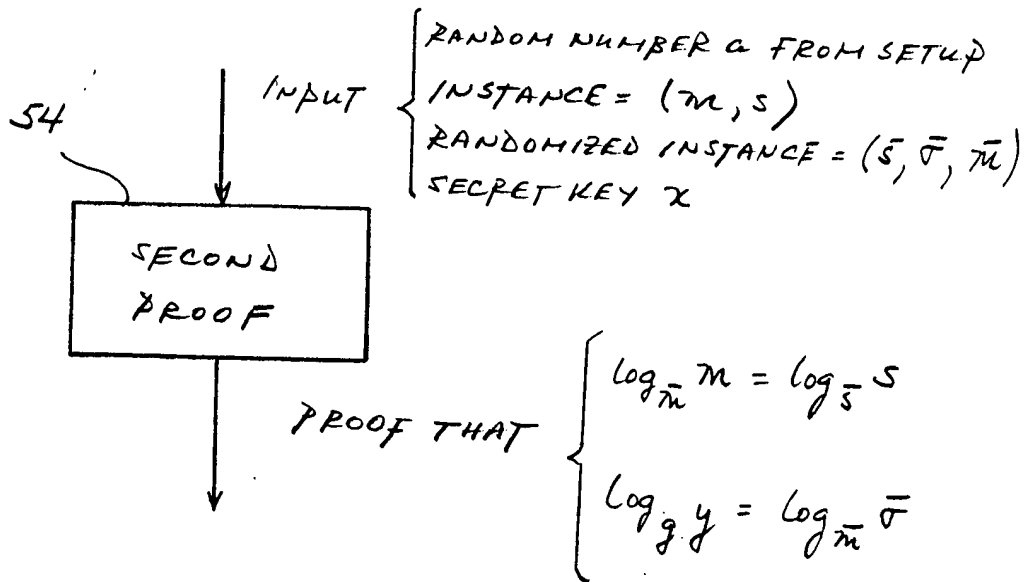 54
INPUT
RANDOM NUMBER a FROM SETUP
INSTANCE = (m, s)
RANDOMIZED INSTANCE = (s̄, σ̄, m̄)
SECRET KEY x
SECOND
PROOF
PROOF THAT
log_m̄ m = log_s̄ s
log_g y = log_m̄ σ̄